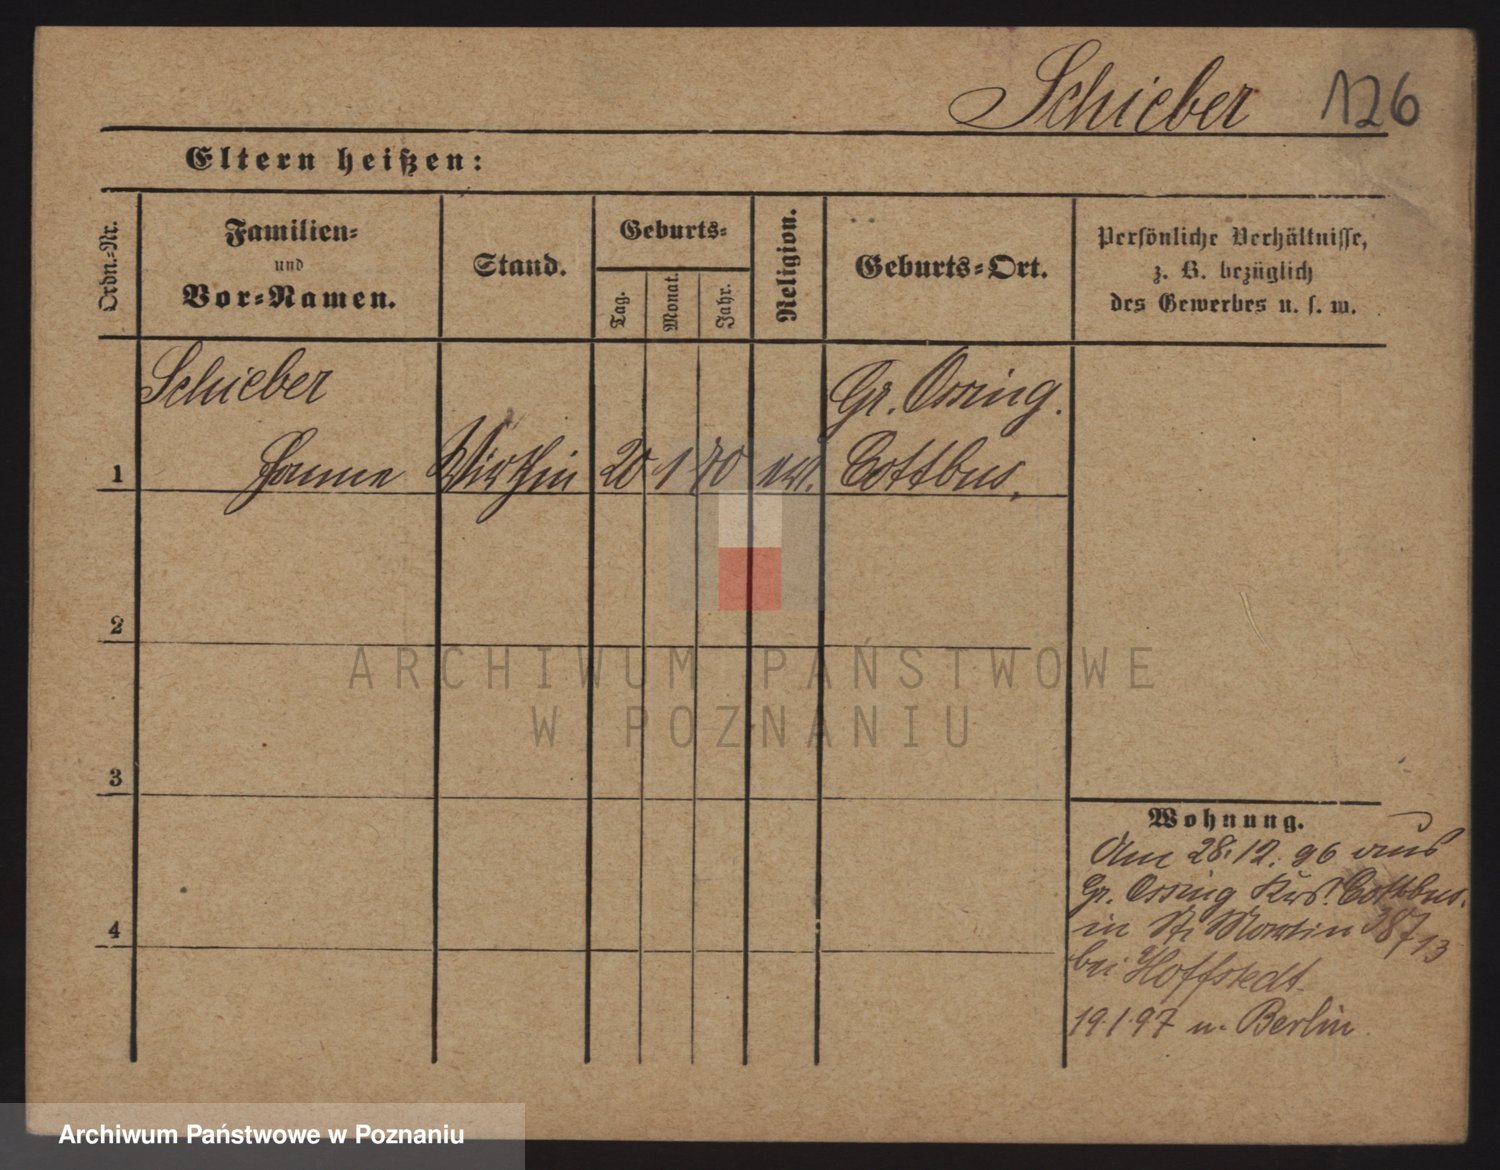 Schieber 126
Eltern heißen:
Ordn.-Nr.
Familien-
und
Vor-Namen.
Stand.
Geburts-
Tag.
Monat.
Jahr.
Religion.
Geburts-Ort.
Persönliche Verhältnisse,
z. B. bezüglich
des Gewerbes u. s. w.
Schieber
Gr. Ossnig.
1 Hanne Wirthin 20 1 70 ev. Cottbus.
2
3
4
Wohnung.
Am 28.12.96 aus
Gr. Ossnig Krs. Cottbus.
in St. Martin
bei Hoffstedt
19.1.97 n. Berlin
ARCHIWUM PAŃSTWOWE
W POZNANIU
Archiwum Państwowe w Poznaniu